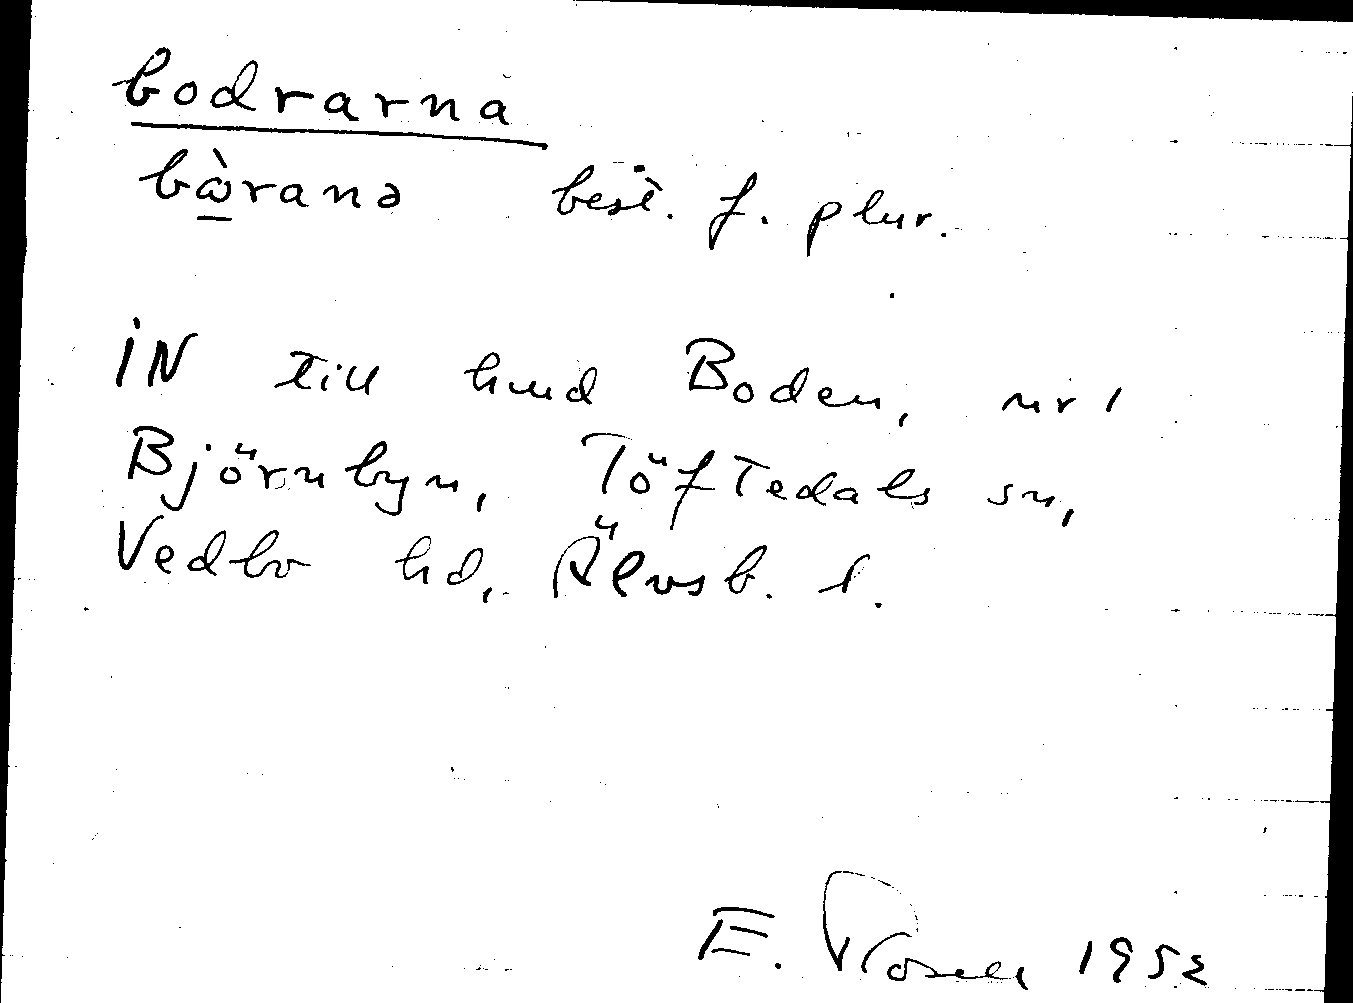 bodrarna
bὼ̲ranə best. f. plur.
IN till hmd Boden, nr 1
Björnbyn, Töftedals sn,
Vedbo hd, Älvsb. l.
E. Rosell 1952